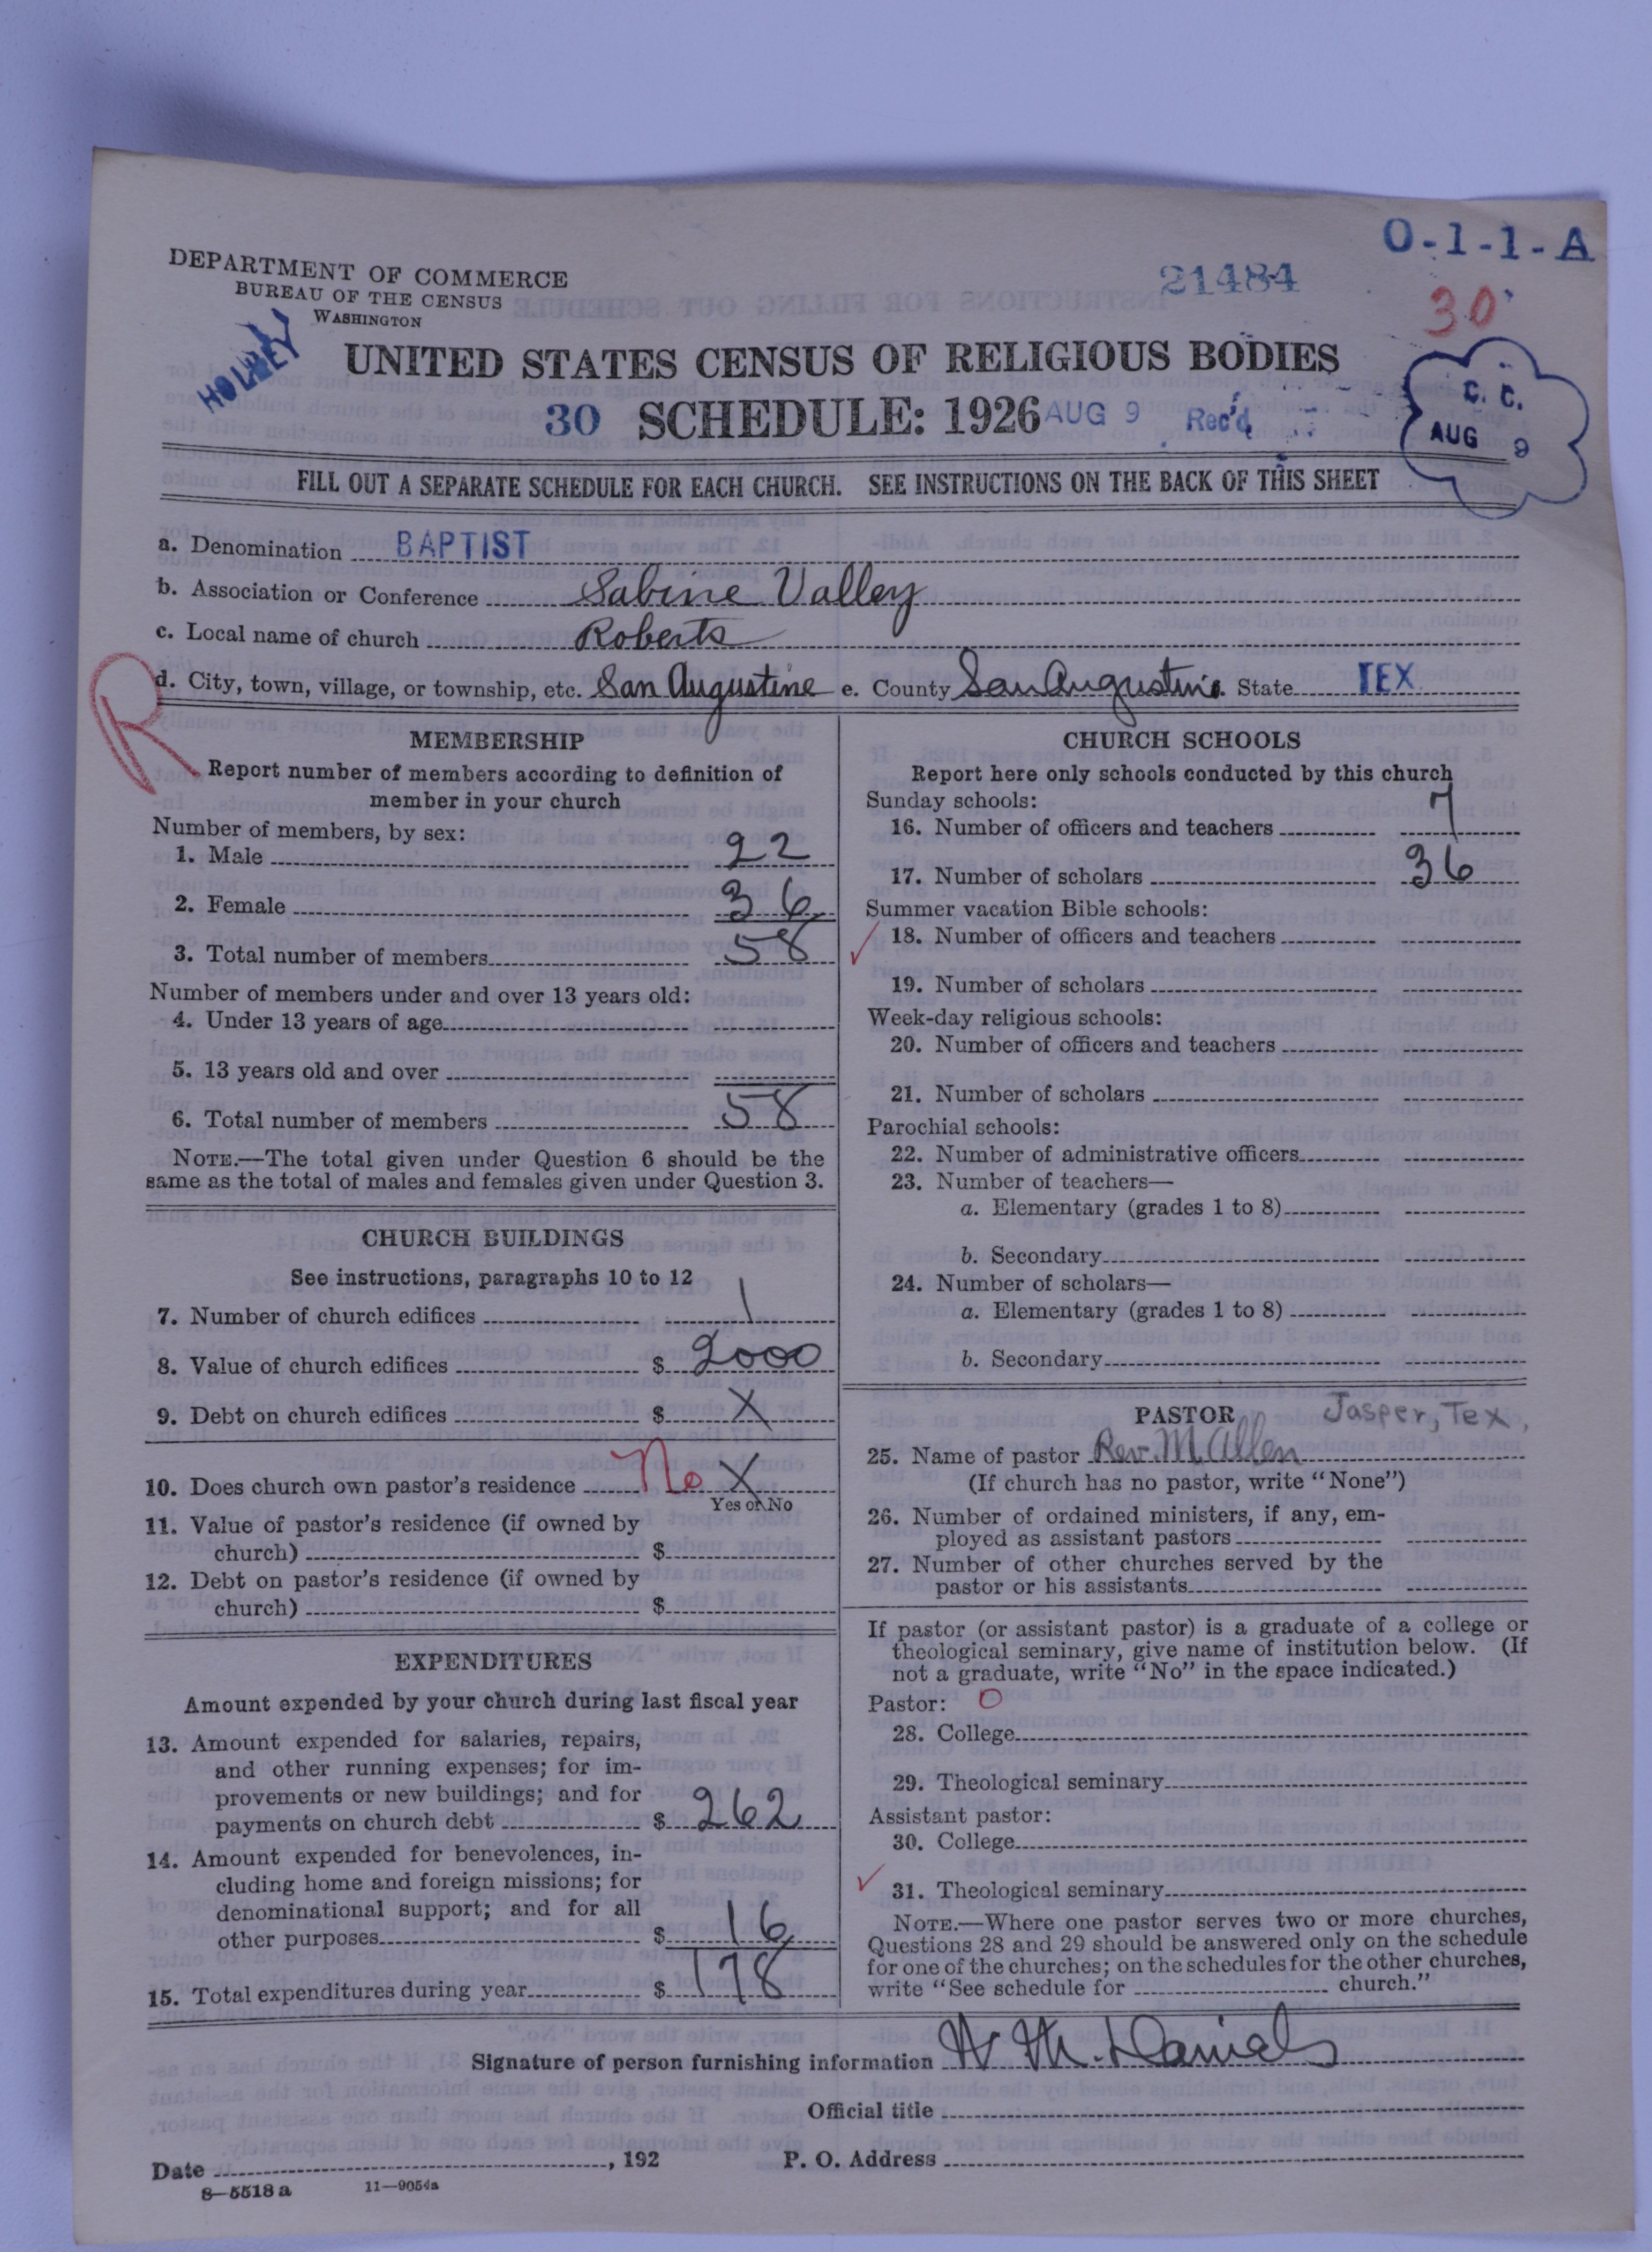 O-1-1-A
DEPARTMENT OF COMMERCE
BUREAU OF THE CENSUS
WASHINGTON
21484
30
HOLBEY
UNITED STATES CENSUS OF RELIGIOUS BODIES
30 SCHEDULE: 1926 AUG 9 Rec'd
C. C.
AUG 9
FILL OUT A SEPARATE SCHEDULE FOR EACH CHURCH. SEE INSTRUCTIONS ON THE BACK OF THIS SHEET
a. Denomination BAPTIST
b. Association or Conference Sabine Valley
c. Local name of church Roberts
R
d. City, town, village, or township, etc. San Augustine e. County San Augustine State TEX.
MEMBERSHIP
Report number of members according to definition of
member in your church
Number of members, by sex:
1. Male 22
2. Female 36
3. Total number of members 58
Number of members under and over 13 years old:
4. Under 13 years of age
5. 13 years old and over
6. Total number of members 58
NOTE.—The total given under Question 6 should be the
same as the total of males and females given under Question 3.
CHURCH BUILDINGS
See instructions, paragraphs 10 to 12
7. Number of church edifices 1
8. Value of church edifices $ 2000
9. Debt on church edifices $ X
10. Does church own pastor's residence No X
Yes or No
11. Value of pastor's residence (if owned by
church) $
12. Debt on pastor's residence (if owned by
church) $
EXPENDITURES
Amount expended by your church during last fiscal year
13. Amount expended for salaries, repairs,
and other running expenses; for im-
provements or new buildings; and for
payments on church debt $ 262
14. Amount expended for benevolences, in-
cluding home and foreign missions; for
denominational support; and for all
other purposes $ 16
15. Total expenditures during year $ 178
CHURCH SCHOOLS
Report here only schools conducted by this church
Sunday schools:
16. Number of officers and teachers 7
17. Number of scholars 36
Summer vacation Bible schools:
18. Number of officers and teachers
19. Number of scholars
Week-day religious schools:
20. Number of officers and teachers
21. Number of scholars
Parochial schools:
22. Number of administrative officers
23. Number of teachers—
a. Elementary (grades 1 to 8)
b. Secondary
24. Number of scholars—
a. Elementary (grades 1 to 8)
b. Secondary
PASTOR Jasper, Tex,
25. Name of pastor Rev. M Allen
(If church has no pastor, write "None")
26. Number of ordained ministers, if any, em-
ployed as assistant pastors
27. Number of other churches served by the
pastor or his assistants
If pastor (or assistant pastor) is a graduate of a college or
theological seminary, give name of institution below. (If
not a graduate, write "No" in the space indicated.)
Pastor: O
28. College
29. Theological seminary
Assistant pastor:
30. College
31. Theological seminary
NOTE.—Where one pastor serves two or more churches,
Questions 28 and 29 should be answered only on the schedule
for one of the churches; on the schedules for the other churches,
write "See schedule for church."
Signature of person furnishing information W M. Daniels
Official title
Date , 192 P. O. Address
8—5518a 11—9054a